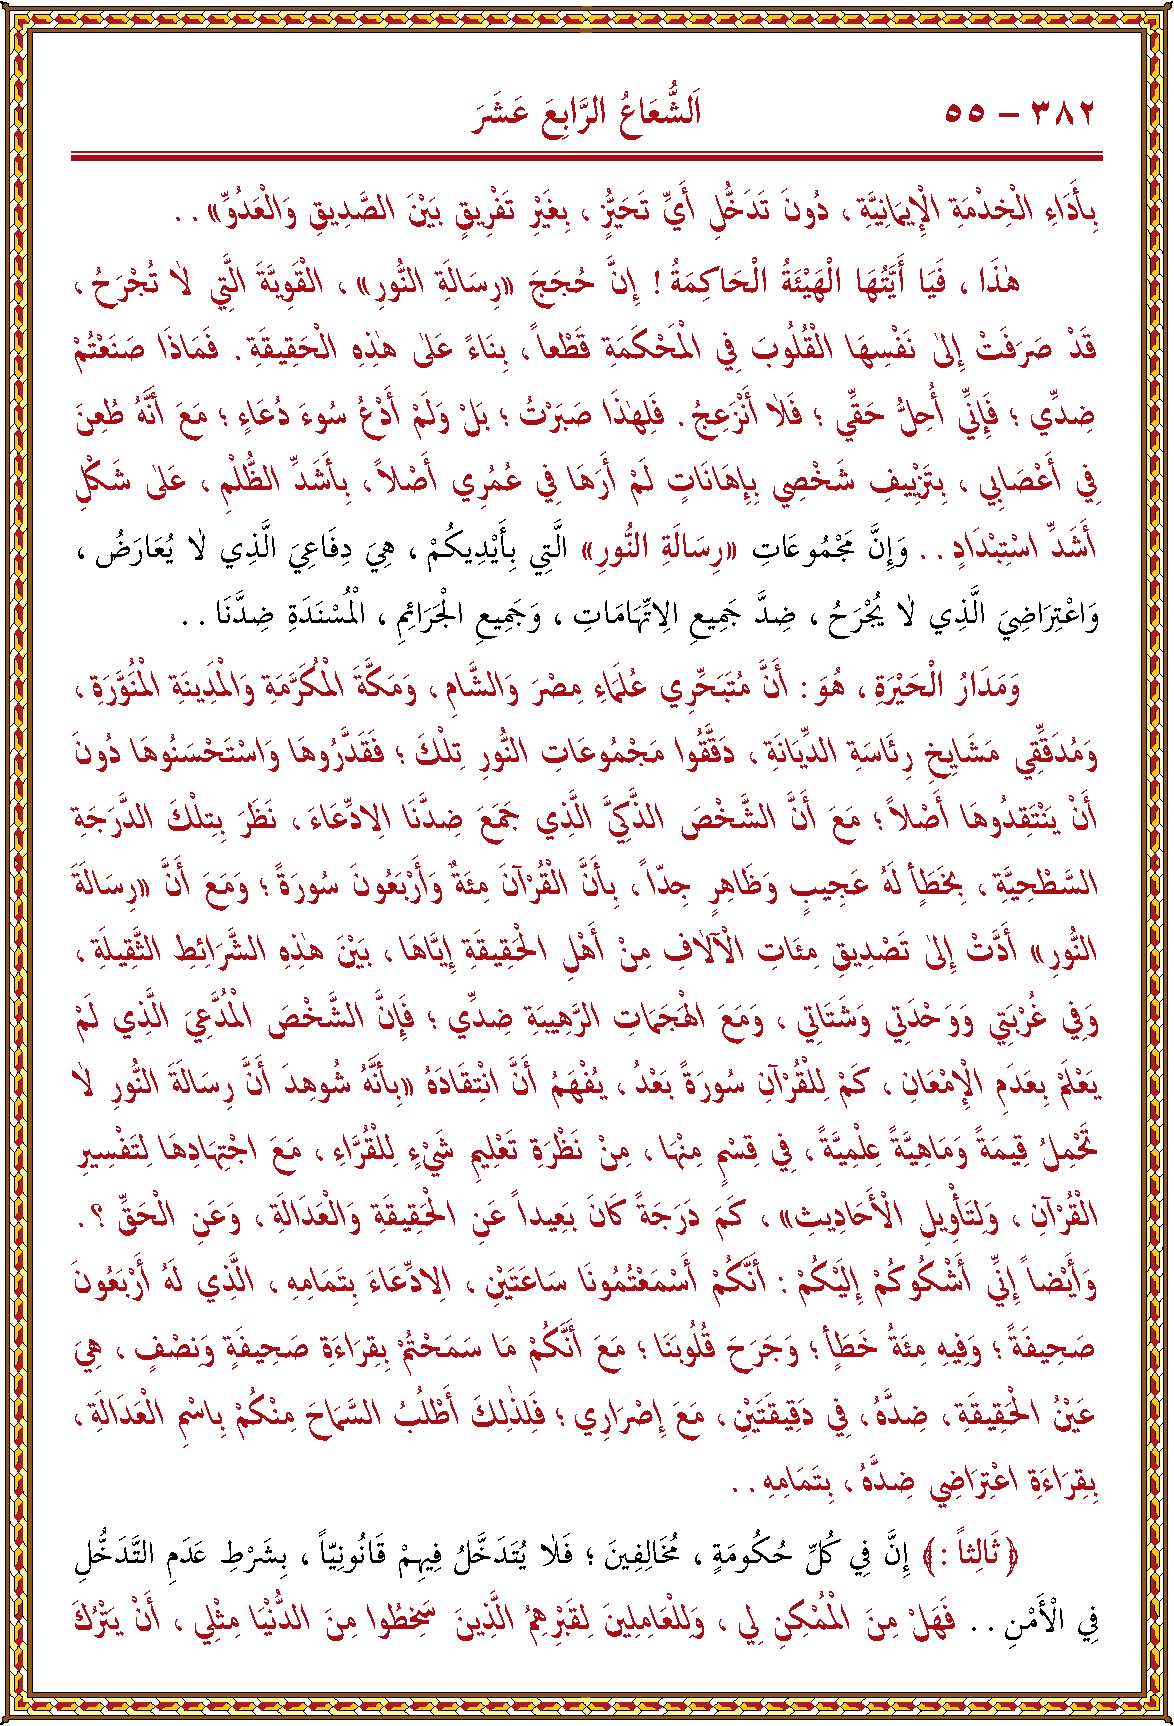 ٣٨٢ – ٥٥ اَلشُّعَاعُ الرَّابِعَ عَشَرَ
بِأَدَاءِ الْخِدْمَةِ الْإِيمَانِيَّةِ ، دُونَ تَدَخُّلِ أَيِّ تَحَيُّزٍ ، بِغَيْرِ تَفْرِيقٍ بَيْنَ الصَّدِيقِ وَالْعَدُوِّ» . .
هٰذَا ، فَيَا أَيَّتُهَا الْهَيْئَةُ الْحَاكِمَةُ ! إِنَّ حُجَجَ «رِسَالَةِ النُّورِ» ، الْقَوِيَّةَ الَّتِي لَا تُجْرَحُ ،
قَدْ صَرَفَتْ إِلَى نَفْسِهَا الْقُلُوبَ فِي الْمَحْكَمَةِ قَطْعاً ، بِنَاءً عَلَى هٰذِهِ الْحَقِيقَةِ . فَمَاذَا صَنَعْتُمْ
ضِدِّي ؛ فَإِنِّي أُحِلُّ حَقِّي ؛ فَلَا أَنْزَعِجُ . فَلِهٰذَا صَبَرْتُ ؛ بَلْ وَلَمْ أَدْعُ سُوءَ دُعَاءٍ ؛ مَعَ أَنَّهُ طُعِنَ
فِي أَعْصَابِي ، بِتَزْيِيفِ شَخْصِي بِإِهَانَاتٍ لَمْ أَرَهَا فِي عُمُرِي أَصْلاً ، بِأَشَدِّ الظُّلْمِ ، عَلَى شَكْلِ
أَشَدِّ اسْتِبْدَادٍ . . وَإِنَّ مَجْمُوعَاتِ «رِسَالَةِ النُّورِ» الَّتِي بِأَيْدِيكُمْ ، هِيَ دِفَاعِيَ الَّذِي لَا يُعَارَضُ ،
وَاعْتِرَاضِيَ الَّذِي لَا يُجْرَحُ ، ضِدَّ جَمِيعِ الِاتِّهَامَاتِ ، وَجَمِيعِ الْجَرَائِمِ ، الْمُسْنَدَةِ ضِدَّنَا . .
وَمَدَارُ الْحَيْرَةِ ، هُوَ : أَنَّ مُتَبَحِّرِي عُلَمَاءِ مِصْرَ وَالشَّامِ ، وَمَكَّةَ الْمُكَرَّمَةِ وَالْمَدِينَةِ الْمُنَوَّرَةِ ،
وَمُدَقِّقِي مَشَايِخِ رِئَاسَةِ الدِّيَانَةِ ، دَقَّقُوا مَجْمُوعَاتِ النُّورِ تِلْكَ ؛ فَقَدَّرُوهَا وَاسْتَحْسَنُوهَا دُونَ
أَنْ يَنْتَقِدُوهَا أَصْلاً ؛ مَعَ أَنَّ الشَّخْصَ الذَّكِيَّ الَّذِي جَمَعَ ضِدَّنَا الِادِّعَاءَ ، نَظَرَ بِتِلْكَ الدَّرَجَةِ
السَّطْحِيَّةِ ، بِخَطَأٍ لَهُ عَجِيبٍ وَظَاهِرٍ جِدّاً ، بِأَنَّ الْقُرْآنَ مِئَةٌ وَأَرْبَعُونَ سُورَةً ؛ وَمَعَ أَنَّ «رِسَالَةَ
النُّورِ» أَدَّتْ إِلَى تَصْدِيقِ مِئَاتِ الْآلَافِ مِنْ أَهْلِ الْحَقِيقَةِ إِيَّاهَا ، بَيْنَ هٰذِهِ الشَّرَائِطِ الثَّقِيلَةِ ،
وَفِي غُرْبَتِي وَوَحْدَتِي وَشَتَاتِي ، وَمَعَ الْهَجَمَاتِ الرَّهِيبَةِ ضِدِّي ؛ فَإِنَّ الشَّخْصَ الْمُدَّعِيَ الَّذِي لَمْ
يَعْلَمْ بِعَدَمِ الْإِمْعَانِ ، كَمْ لِلْقُرْآنِ سُورَةً بَعْدُ ، يُفْهَمُ أَنَّ انْتِقَادَهُ «بِأَنَّهُ شُوهِدَ أَنَّ رِسَالَةَ النُّورِ لَا
تَحْمِلُ قِيمَةً وَمَاهِيَّةً عِلْمِيَّةً ، فِي قِسْمٍ مِنْهَا ، مِنْ نَظْرَةِ تَعْلِيمِ شَيْءٍ لِلْقُرَّاءِ ، مَعَ اجْتِهَادِهَا لِتَفْسِيرِ
الْقُرْآنِ ، وَلِتَأْوِيلِ الْأَحَادِيثِ» ، كَمْ دَرَجَةً كَانَ بَعِيداً عَنِ الْحَقِيقَةِ وَالْعَدَالَةِ ، وَعَنِ الْحَقِّ ؟ .
وَأَيْضاً إِنِّي أَشْكُوكُمْ إِلَيْكُمْ : أَنَّكُمْ أَسْمَعْتُمُونَا سَاعَتَيْنِ ، الِادِّعَاءَ بِتَمَامِهِ ، الَّذِي لَهُ أَرْبَعُونَ
صَحِيفَةً ؛ وَفِيهِ مِئَةُ خَطَأٍ ؛ وَجَرَحَ قُلُوبَنَا ؛ مَعَ أَنَّكُمْ مَا سَمَحْتُمْ بِقِرَاءَةِ صَحِيفَةٍ وَنِصْفٍ ، هِيَ
عَيْنُ الْحَقِيقَةِ ، ضِدَّهُ ، فِي دَقِيقَتَيْنِ ، مَعَ إِصْرَارِي ؛ فَلِذٰلِكَ أَطْلُبُ السَّمَاحَ مِنْكُمْ بِاسْمِ الْعَدَالَةِ ،
بِقِرَاءَةِ اعْتِرَاضِي ضِدَّهُ ، بِتَمَامِهِ . .
﴿ ثَالِثاً : ﴾ إِنَّ فِي كُلِّ حُكُومَةٍ ، مُخَالِفِينَ ؛ فَلَا يُتَدَخَّلُ فِيهِمْ قَانُونِيّاً ، بِشَرْطِ عَدَمِ التَّدَخُّلِ
فِي الْأَمْنِ . . فَهَلْ مِنَ الْمُمْكِنِ لِي ، وَلِلْعَامِلِينَ لِقَبْرِهِمُ الَّذِينَ سَخِطُوا مِنَ الدُّنْيَا مِثْلِي ، أَنْ يَتْرُكَ